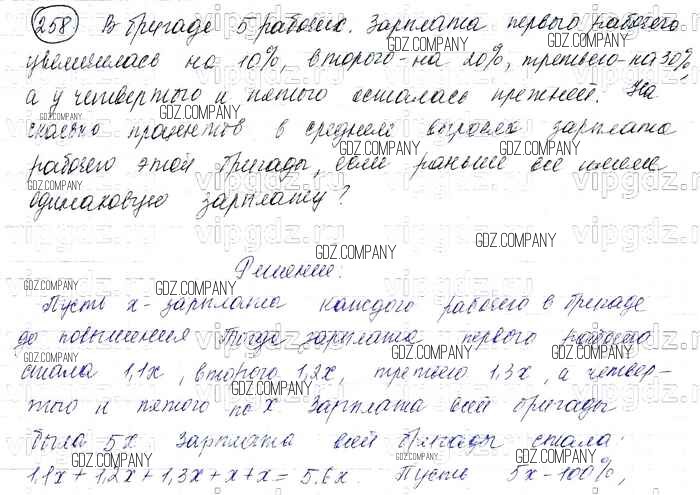 258 В бригаде 5 рабочих. Зарплата первого рабочего
увеличилась на 10%, второго - на 20%, третьего - на 30%,
а у четвертого и пятого осталась прежней. На
сколько процентов в среднем выросла зарплата
рабочего этой бригады, если раньше все имели
одинаковую зарплату?
Решение:
Пусть x - зарплата каждого рабочего в бригаде
до повышения Тогда зарплата первого рабочего
стала 1,1x, второго 1,2x, третьего 1,3x, а четвер-
того и пятого по x Зарплата всей бригады
была 5x Зарплата всей бригады стала:
1,1x + 1,2x + 1,3x + x + x = 5.6x. Пусть 5x - 100%,
GDZ.COMPANY
vipgdz.ru